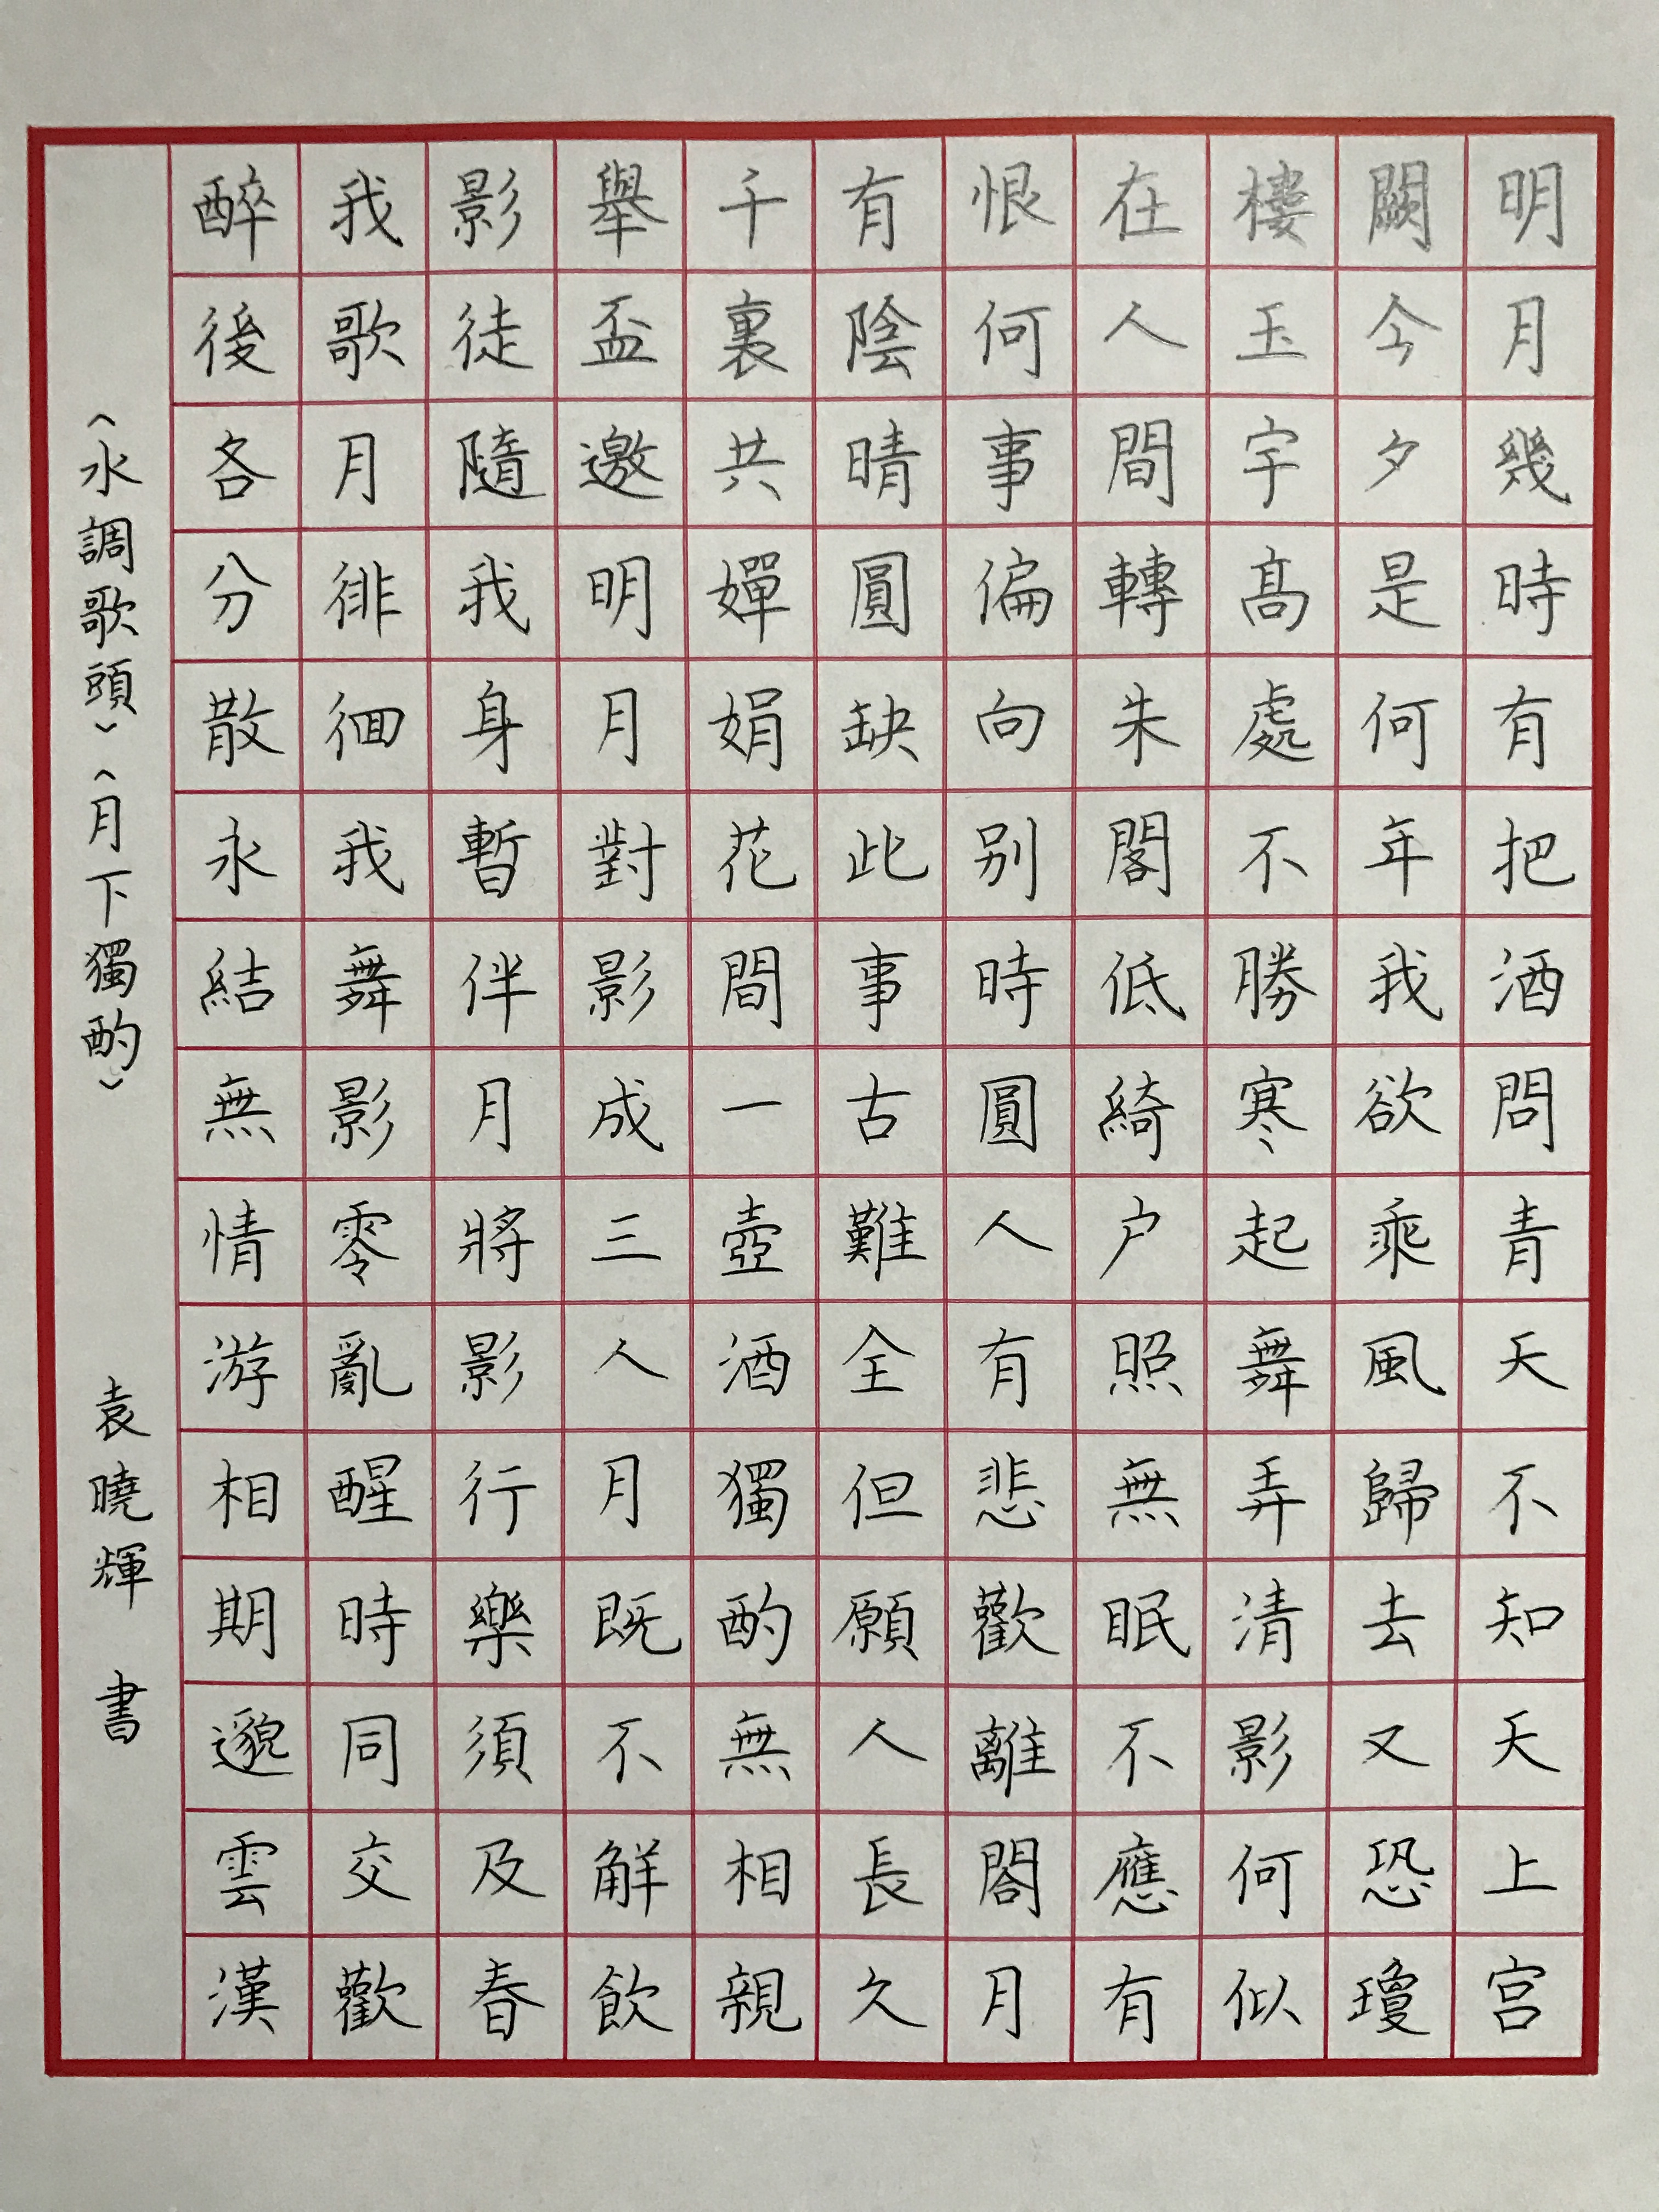 明月幾時有把酒問青天不知天上宫
闕今夕是何年我欲乘風歸去又恐瓊
樓玉宇高處不勝寒起舞弄清影何似
在人間轉朱閣低綺户照無眠不應有
恨何事偏向别時圓人有悲歡離閤月
有陰晴圓缺此事古難全但願人長久
千裏共嬋娟花間一壺酒獨酌無相親
舉盃邀明月對影成三人月既不解飲
影徒隨我身暫伴月將影行樂須及春
我歌月徘徊我舞影零亂醒時同交歡
醉後各分散永結無情游相期邈雲漢
《水調歌頭》《月下獨酌》 袁曉輝 書